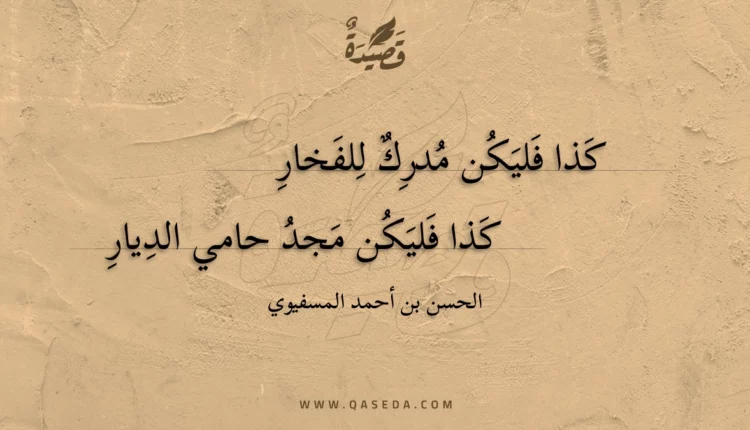 قَصِيدَةٌ
كَذا فَليَكُن مُدرِكٌ لِلفَخارِ
كَذا فَليَكُن مَجدُ حامي الدِيارِ
الحسن بن أحمد المسفيوي
WWW.QASEDA.COM